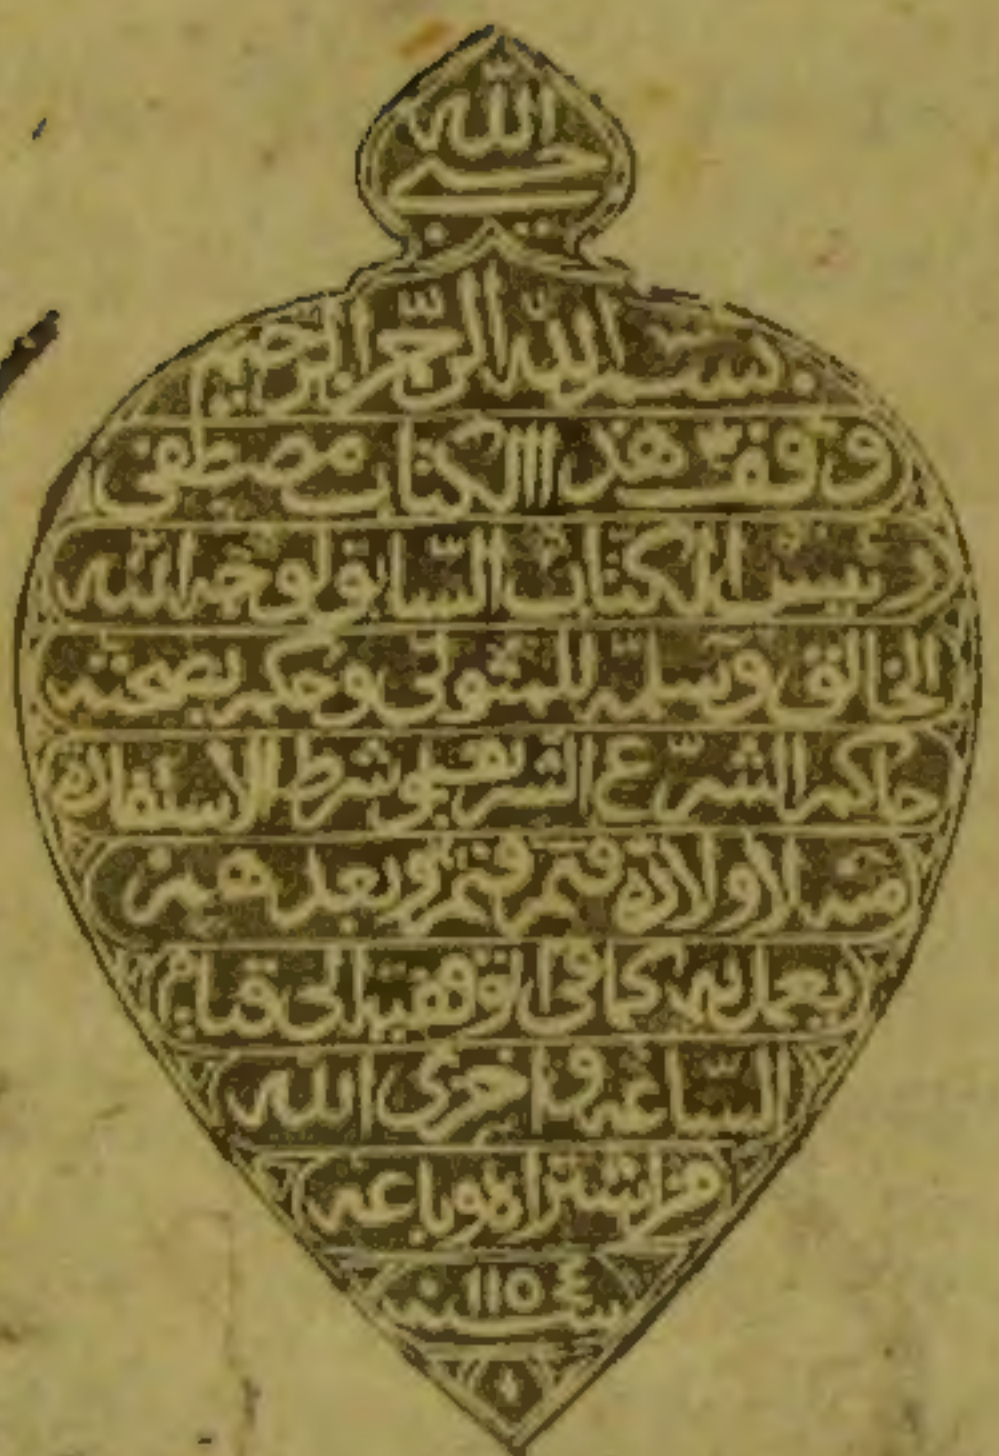 الله
حسبي
بسم الله الرحمن الرحيم
وقف هذا الكتاب مصطفى
رئيس الكتاب السابق لوجه الله
الخالق وسلمه للمتولي وحكم بصحته
حاكم الشرع الشريف على شرط الاستفادة
منه لاولاده فثم فثم وبعدهم
يعمل به كما في الوقفية الى قيام
الساعة واخزى الله
من اشتراه وباعه
سنة ١١٥٤